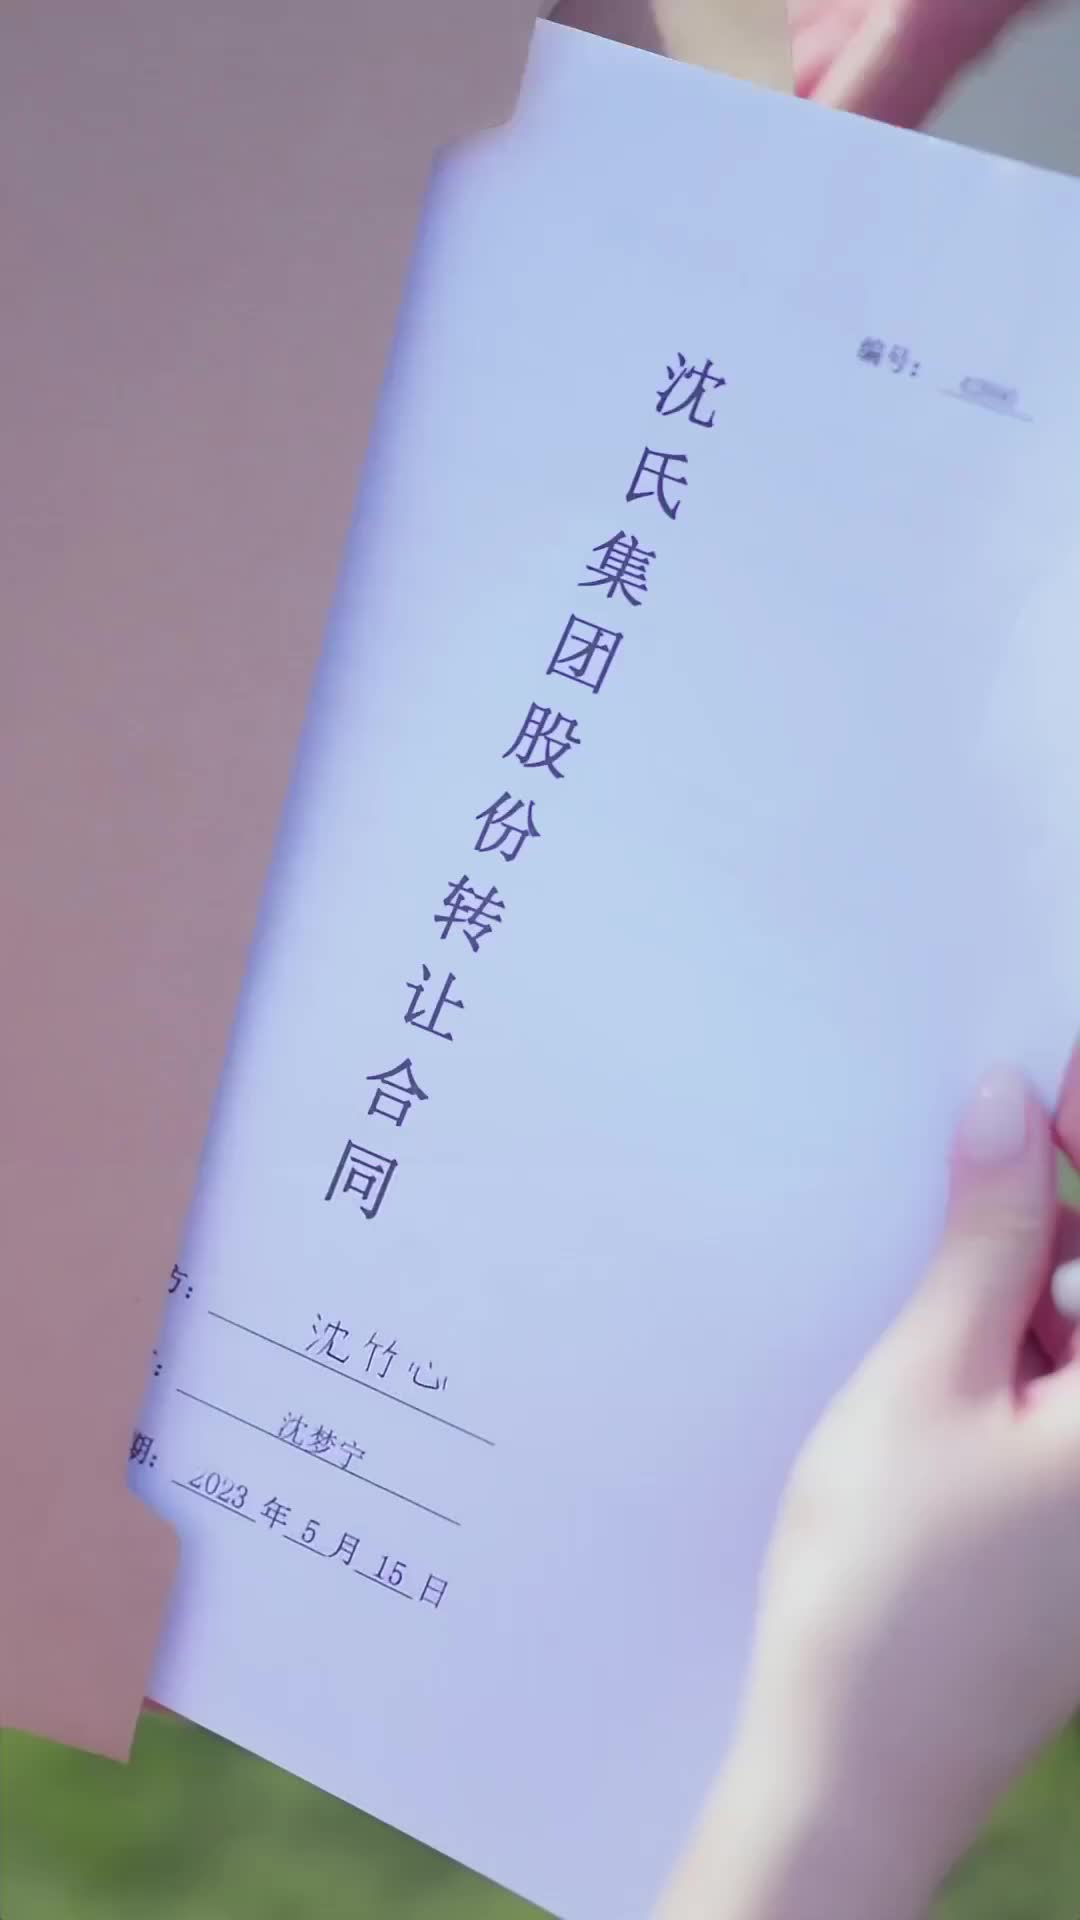 编号：
沈氏集团股份转让合同
方：沈竹心
：沈梦宁
期：2023年5月15日